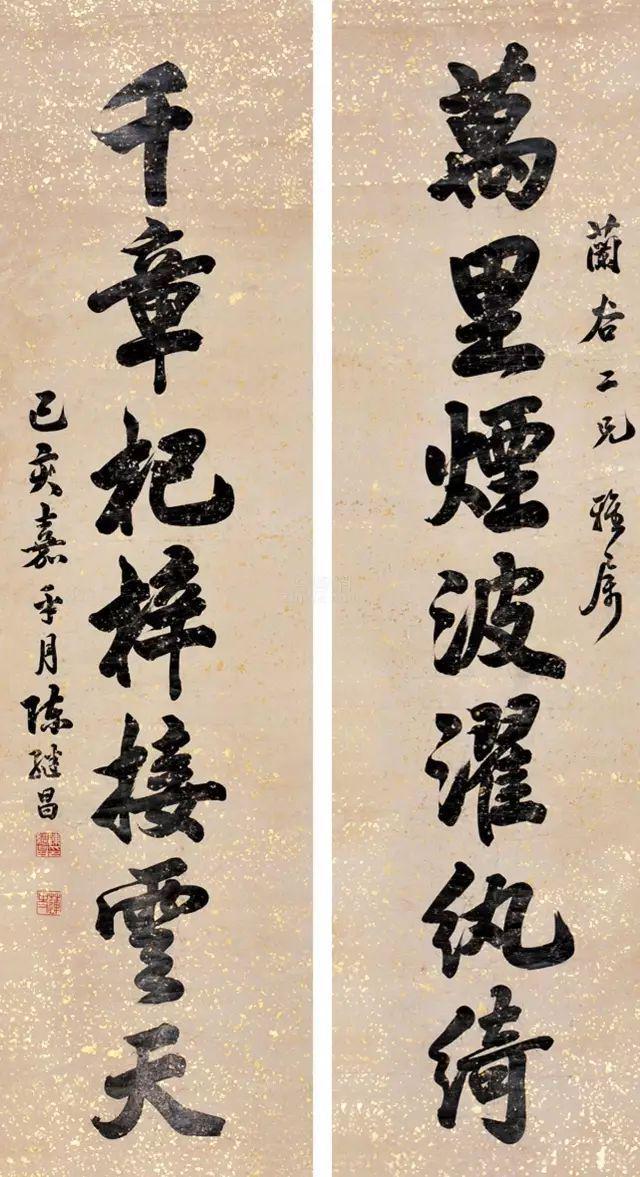 蘭谷二兄雅屬
萬里煙波濯紈綺
千章杞梓接雲天
己亥嘉平月陳繼昌